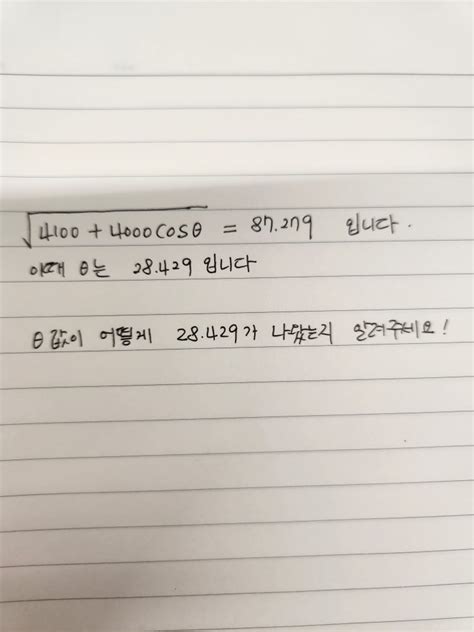 √4100 + 4000cosθ = 87.279 입니다.
이때 θ는 28.429 입니다
θ값이 어떻게 28.429가 나왔는지 알려주세요!